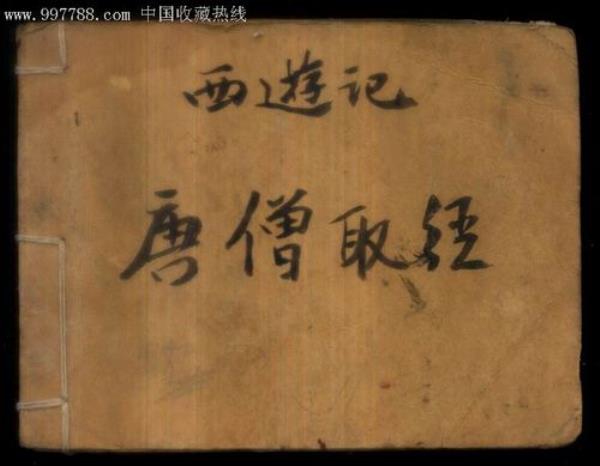 www.997788.com 中国收藏热线
西遊记
唐僧取经